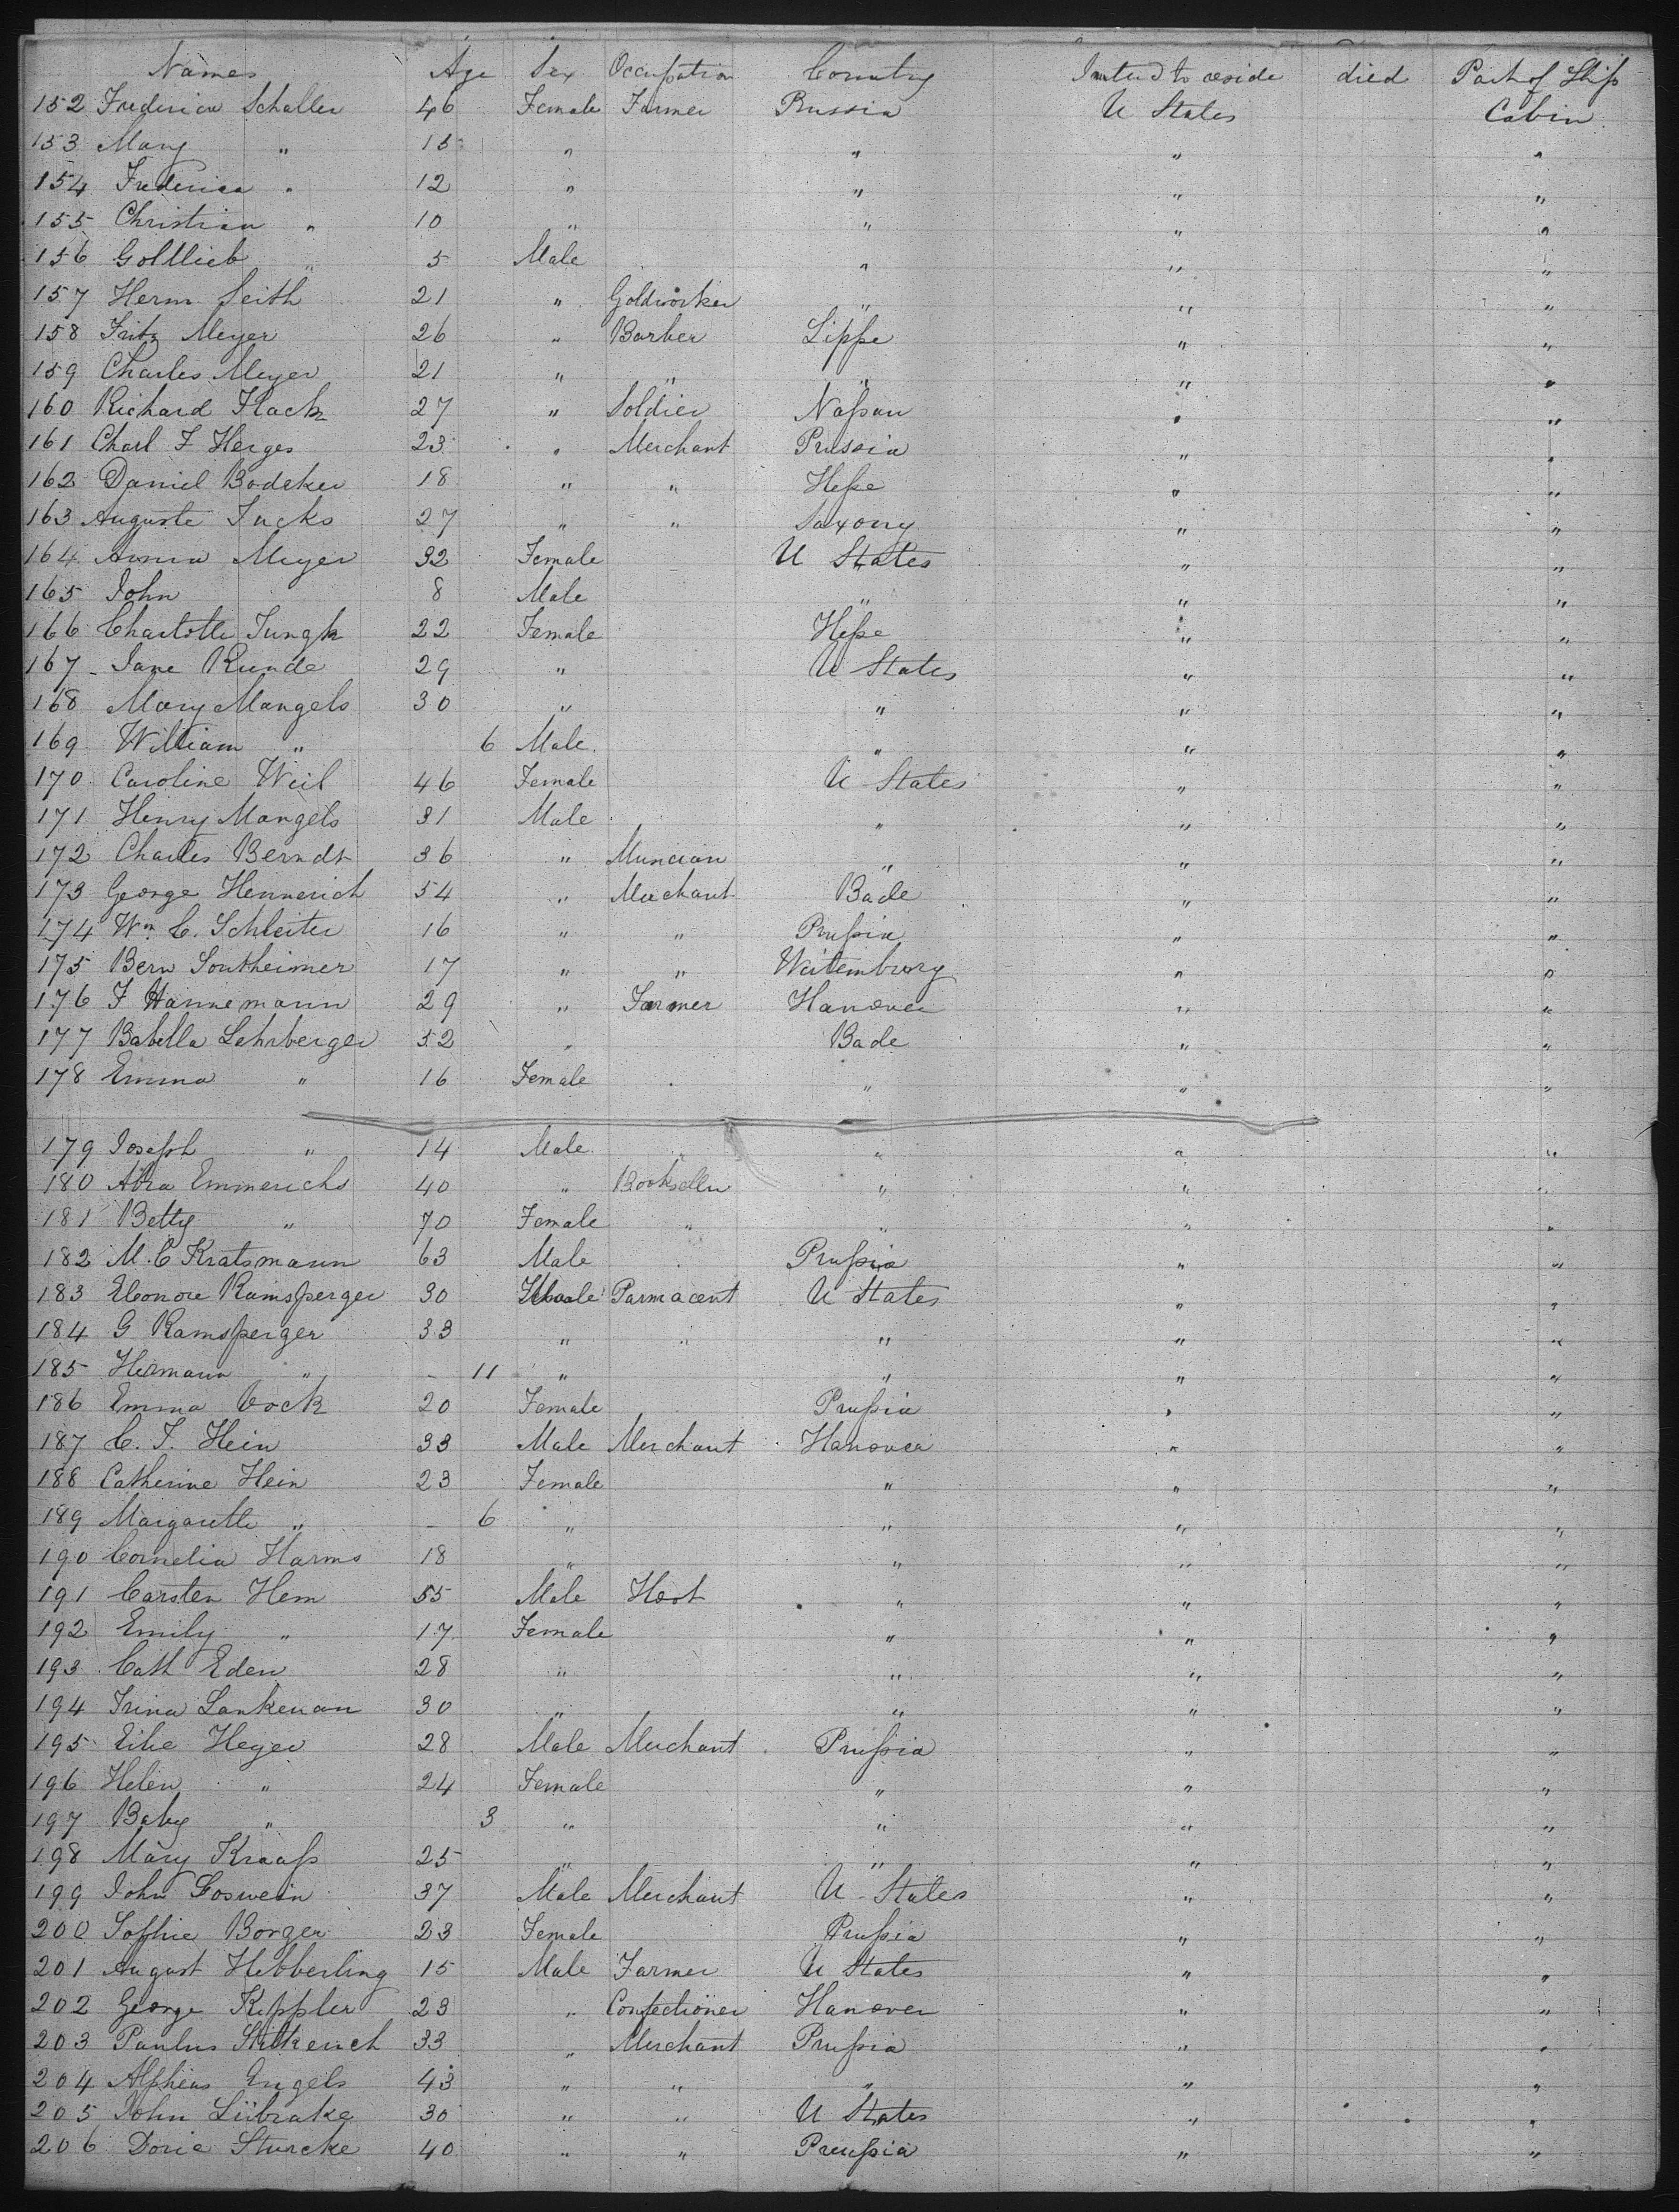 Names Age Sex Occupation Country Intend to reside died Part of Ship
152 Frederica Schaller 46 Female Farmer Prussia U States Cabin
153 Mary " 15 " " " "
154 Frederica " 12 " " " "
155 Christian " 10 " " " "
156 Gottlieb " 5 Male " " "
157 Herm Seith 21 " Goldworker " " "
158 Fritz Meyer 26 " Barber Lippe " "
159 Charles Meyer 21 " " " " "
160 Richard Flack 27 " Soldier Naßau " "
161 Charl F Herges 23 " Merchant Prussia " "
162 Daniel Bodeker 18 " " Heße " "
163 Auguste Fucks 27 " " Saxony " "
164 Anna Meyer 32 Female U States " "
165 John 8 Male " " "
166 Charlotte Jungk 22 Female Heße " "
167 Jane Runde 29 " U States " "
168 Mary Mangels 30 " " " "
169 William " 6 Male " " "
170 Caroline Weil 46 Female U States " "
171 Henry Mangels 31 Male " " "
172 Charles Berndt 36 " Muncian " " "
173 George Hennerich 54 " Merchant Bade " "
174 Wm C. Schleiter 16 " " Prußia " "
175 Bern Sontheimer 17 " " Würtemburg " "
176 F Hannemann 29 " Farmer Hanover " "
177 Babella Lehrberger 52 " Bade " "
178 Emma " 16 Female " " "
179 Joseph " 14 Male " " "
180 Abra Emmerichs 40 " Bookseller " " "
181 Betty " 70 Female " " " "
182 M. C Kratsmann 63 Male Prußia " "
183 Eleonore Ramsperger 30 Parmacent U States " "
184 G Ramsperger 33 " " " " "
185 Hermann " - 11 " " " "
186 Emma Vock 20 Female Prußia " "
187 C. F. Hein 33 Male Merchant Hanover " "
188 Catherine Hein 23 Female " " "
189 Margarette " - 6 " " " "
190 Cornelia Harms 18 " " " "
191 Carsten Hem 55 Male Host " " "
192 Emily " 17 Female " " "
193 Cath Eden 28 " " " "
194 Trina Lankenan 30 " " " "
195 Eihe Heyer 28 Male Merchant Prußia " "
196 Helen " 24 Female " " "
197 Baby " 3 " " " "
198 Mary Kraaß 25 " " " "
199 John Goswein 37 Male Merchant U States " "
200 Sophie Borger 23 Female Prußia " "
201 August Hebberling 15 Male Farmer U States " "
202 George Kippler 23 " Confectioner Hanover " "
203 Paulus 33 " Merchant Prußia " "
204 Alpheus Engels 43 " " " " "
205 John Lübrake 30 " " U States " "
206 Doric Sturcke 40 " " Preußia " "